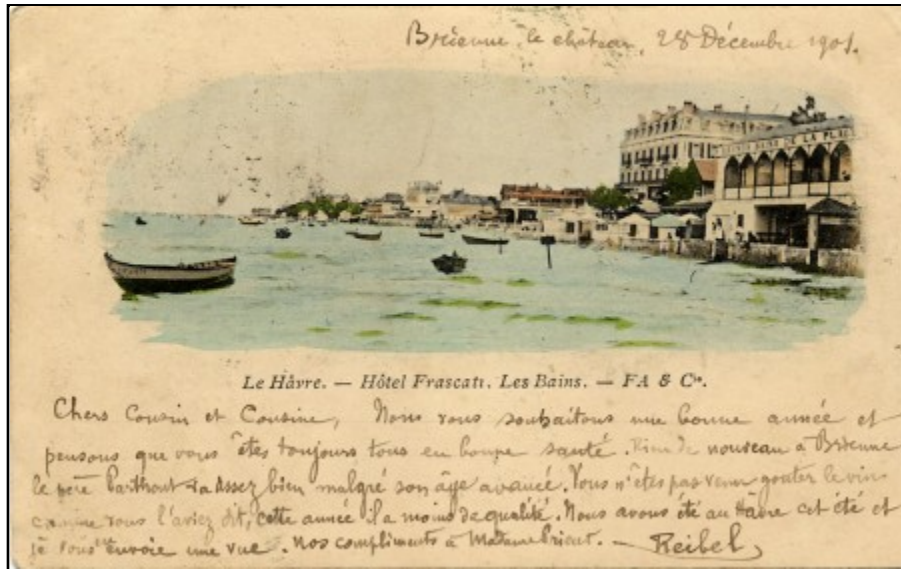 Brienne, le château, 28 Décembre 1901.
BAINS DE LA PLAGE
Le Hâvre. — Hôtel Frascati. Les Bains. — FA & Cie.
Chers Cousin et Cousine, Nous vous souhaitons une bonne année et
pensons que vous êtes toujours tous en bonne santé. Rien de nouveau à Brienne
le père va assez bien malgré son âge avancé. Vous n'êtes pas venu gouter le vin
comme vous l'aviez dit, cette année il a moins de qualité. Nous avons été au Hâvre cet été et
je vous envoie une vue. Nos compliments à Madame — Reibel